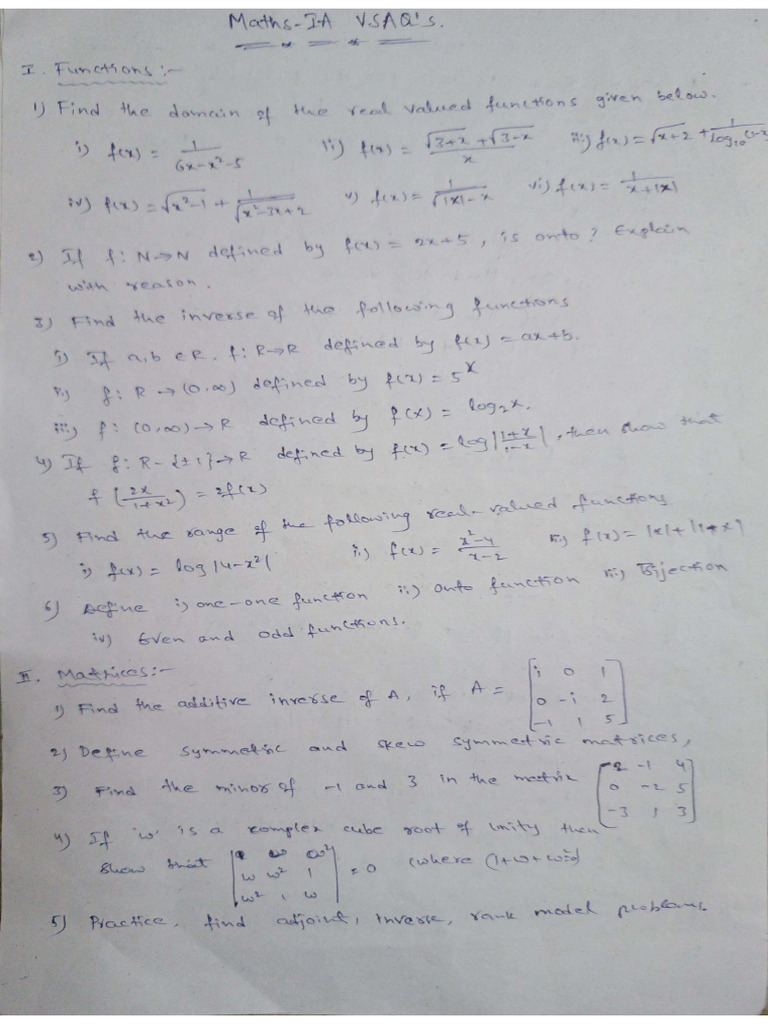 Maths-IA VSAQ's.
I. Functions :-
1) Find the domain of the real valued functions given below.
i) f(x) = 1/(6x-x²-5) ii) f(x) = (√(3+x) + √(3-x))/x iii) f(x) = √(x+2) + 1/log₁₀(1-x)
iv) f(x) = √(x²-1) + 1/√(x²-3x+2) v) f(x) = 1/√(|x|-x) vi) f(x) = 1/(x+|x|)
2) If f: N→N defined by f(x) = 2x+5, is onto? Explain
with reason.
3) Find the inverse of the following functions
i) If a,b ∈ R, f: R→R defined by f(x) = ax+b.
ii) f: R → (0,∞) defined by f(x) = 5ˣ
iii) f: (0,∞) → R defined by f(x) = log₂x.
4) If f: R-{±1}→R defined by f(x) = log|(1+x)/(1-x)|, then show that
f(2x/(1+x²)) = 2f(x)
5) Find the range of the following real-valued functions
i) f(x) = log|4-x²| ii) f(x) = (x²-4)/(x-2) iii) f(x) = |x|+|1+x|
6) Define i) one-one function ii) onto function iii) Bijection
iv) Even and odd functions.
II. Matrices:-
1) Find the additive inverse of A, if A = [i 0 1
0 -i 2
-1 1 5]
2) Define symmetric and skew symmetric matrices,
3) Find the minor of -1 and 3 in the matrix [2 -1 4
0 -2 5
-3 1 3]
4) If 'w' is a complex cube root of unity then
show that |1 w w²
w w² 1
w² 1 w| = 0 (where 1+w+w²=0)
5) Practice, find adjoint, Inverse, rank model problems